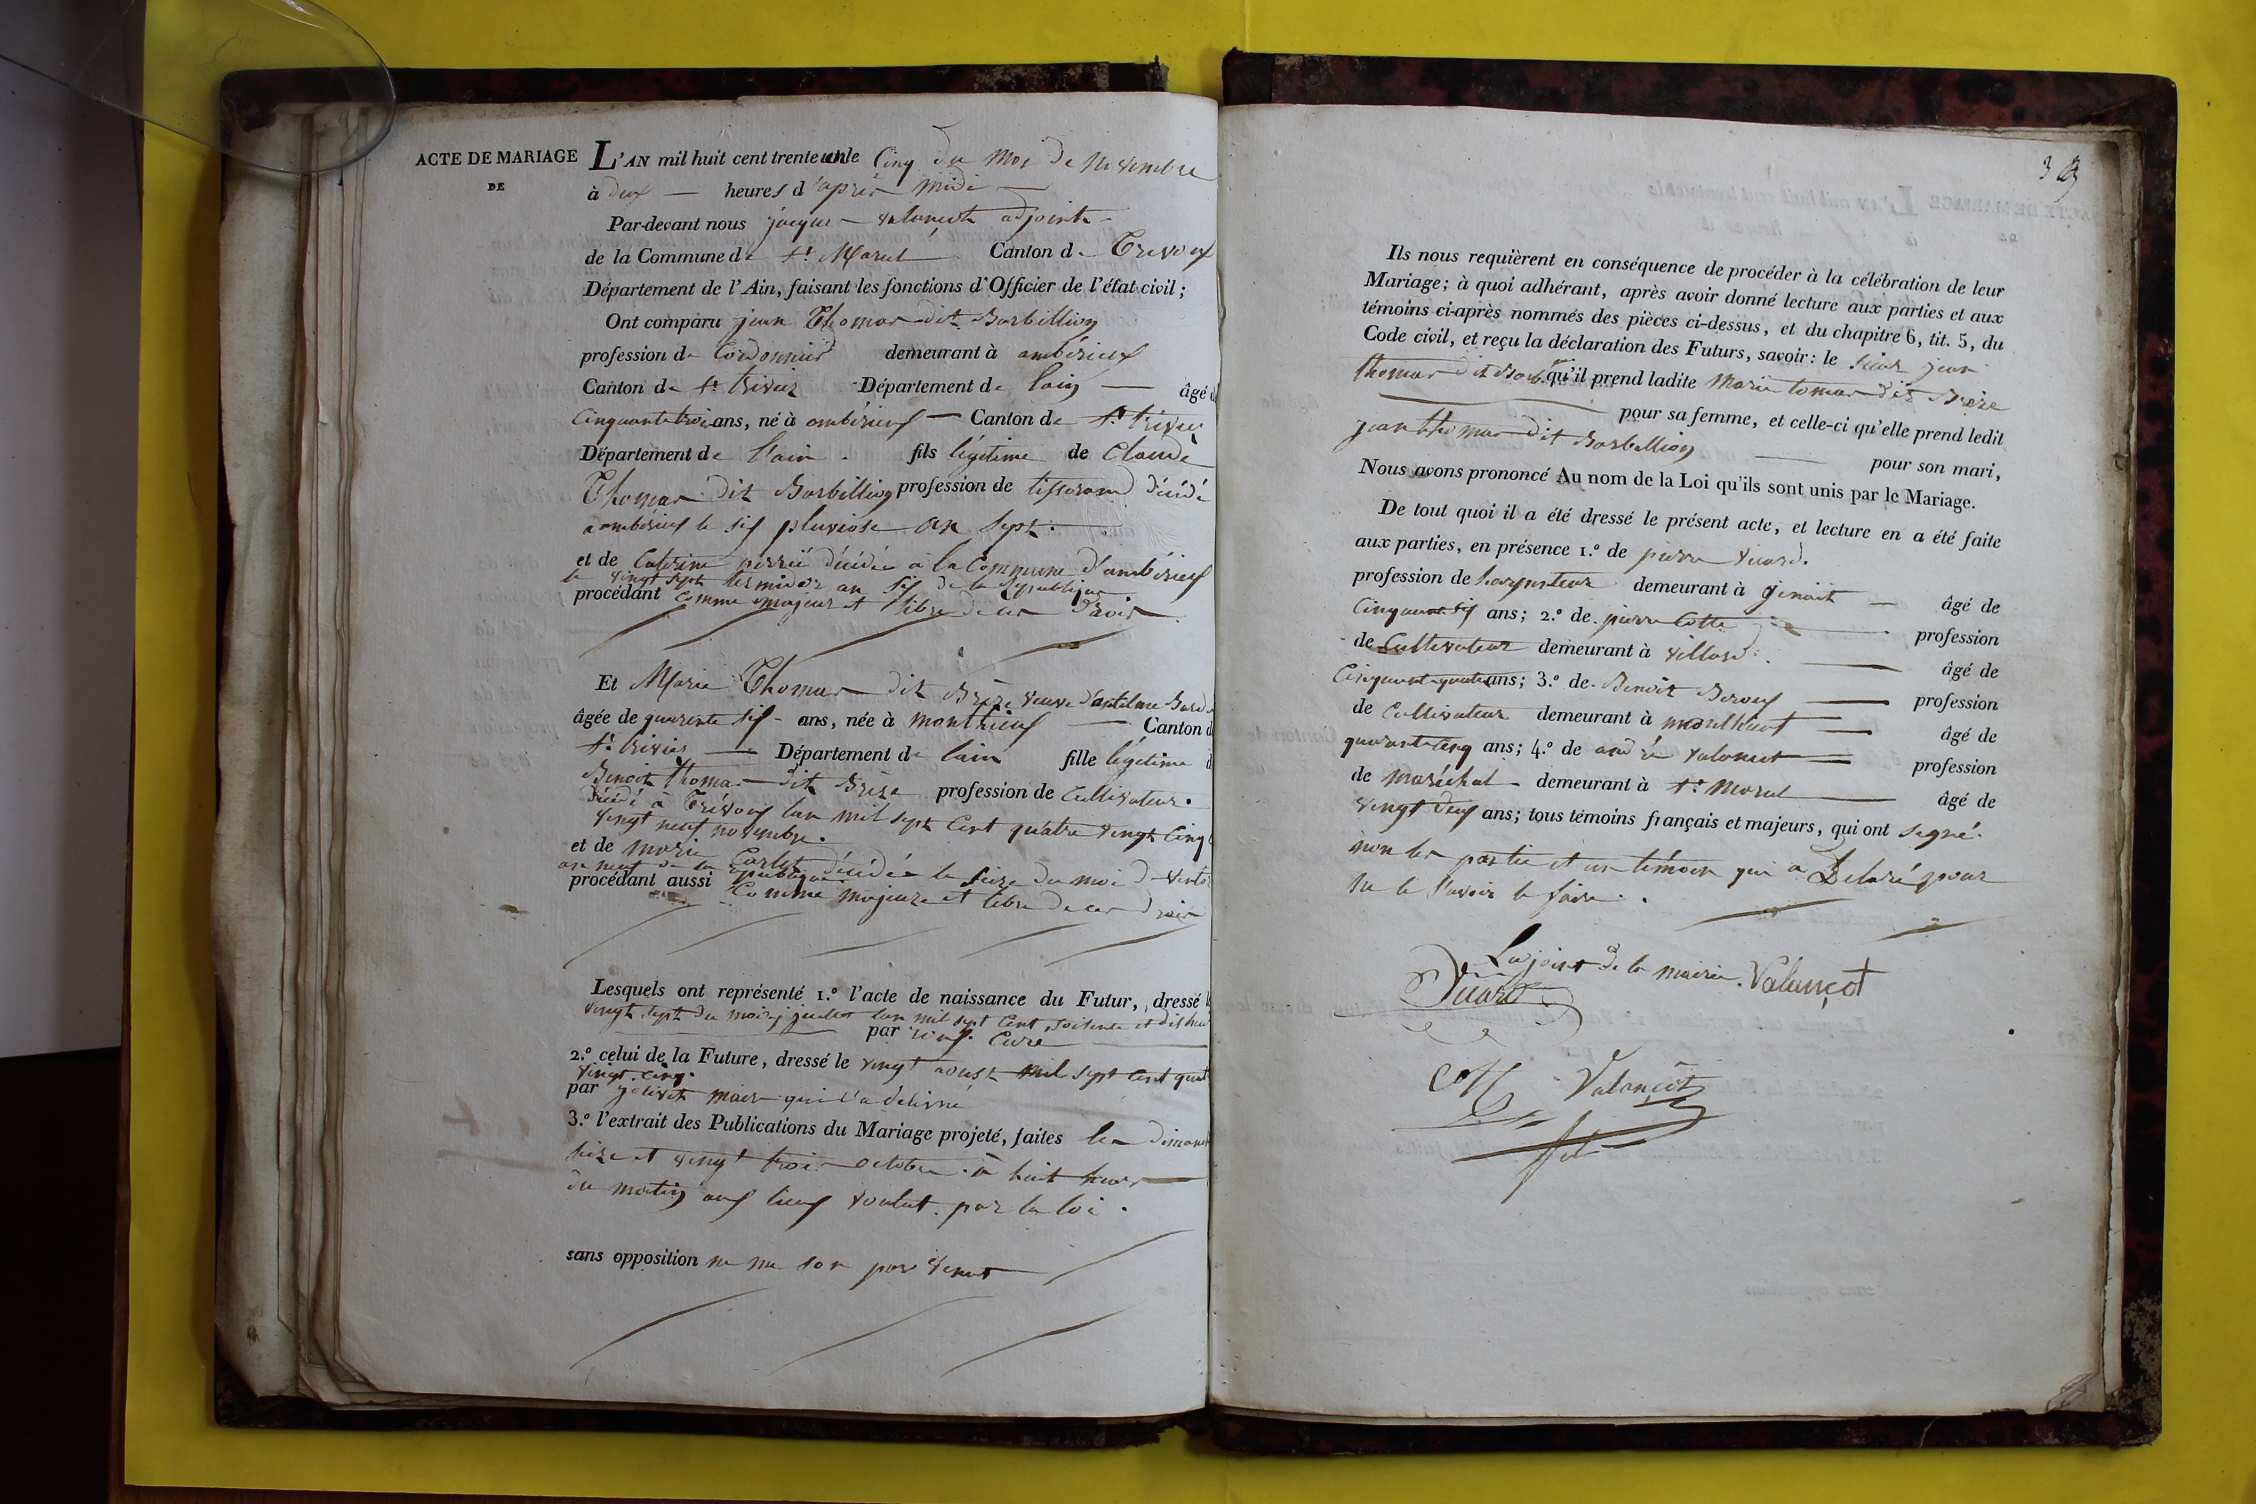 ACTE DE MARIAGE
DE
L'AN mil huit cent trente un le Cinq du Moi de Novembre
à deux heures d'après midi
Par-devant nous jacque Valançot adjoint
de la Commune de St Marcel Canton de Trevoux
Département de l'Ain, faisant les fonctions d'Officier de l'état civil ;
Ont comparu jean Thomas dit Barbillion
profession de Cordonnier demeurant à ambérieux
Canton de St trivier Département de lain âgé d
Cinquante trois ans, né à ambérieux Canton de St trivier
Département de lain fils légitime de Claude
Thomas dit Barbillion profession de tisserand décédé
a ambérieux le six pluviose an sept.
et de Catrine décédée à la Commune d'ambérieux
le vingt sept termidor an six de la République
procédant comme majeur et libre de ces droit
Et Marie Thomas dit Brize veuve d'antelme
âgée de quarente six ans, née à monthieux Canton d
St trivier Département de lain fille légitime d
Benoit thomas dit Brize profession de Cultivateur.
décédé à Trévoux lan mil sept Cent quatre vingt Cinq
vingt neuf novembre.
et de marie Carlet décédée le seize du moi d vento
an neuf de la République
procédant aussi Comme majeure et libre de ces droit
Lesquels ont représenté 1.º l'acte de naissance du Futur, dressé l
vingt sept du moi juillet lan mil sept Cent soisente et dis hui
par Cure
2.º celui de la Future, dressé le vingt aoust mil sept Cent quat
vingt cinq.
par jolivet maire qui l'a delivré
3.º l'extrait des Publications du Mariage projeté, faites les dimanch
seize et vingt trois octobre à huit heur
du matin aux lieux voulut par la loi.
sans opposition
33
Ils nous requièrent en conséquence de procéder à la célébration de leur
Mariage ; à quoi adhérant, après avoir donné lecture aux parties et aux
témoins ci-après nommés des pièces ci-dessus, et du chapitre 6, tit. 5, du
Code civil, et reçu la déclaration des Futurs, savoir : le sieur jean
thomas dit Barb. qu'il prend ladite Marie tomas dit Brize
pour sa femme, et celle-ci qu'elle prend ledit
jean thomas dit Barbillion pour son mari,
Nous avons prononcé Au nom de la Loi qu'ils sont unis par le Mariage.
De tout quoi il a été dressé le présent acte, et lecture en a été faite
aux parties, en présence 1.º de pierre
profession de demeurant à âgé de
Cinquante six ans ; 2.º de pierre Cotte profession
de Cultivateur demeurant à villard. âgé de
Cinquante quatre ans ; 3.º de Benoit profession
de Cultivateur demeurant à âgé de
quarante Cinq ans ; 4.º de andré valancot profession
de maréchal demeurant à St Marcel âgé de
vingt deux ans ; tous témoins français et majeurs, qui ont segné.
non les partie et un témoin qui a Delaré pour
ne le savoir le faire.
Lajoint de la mairie. Valançot
Valançot